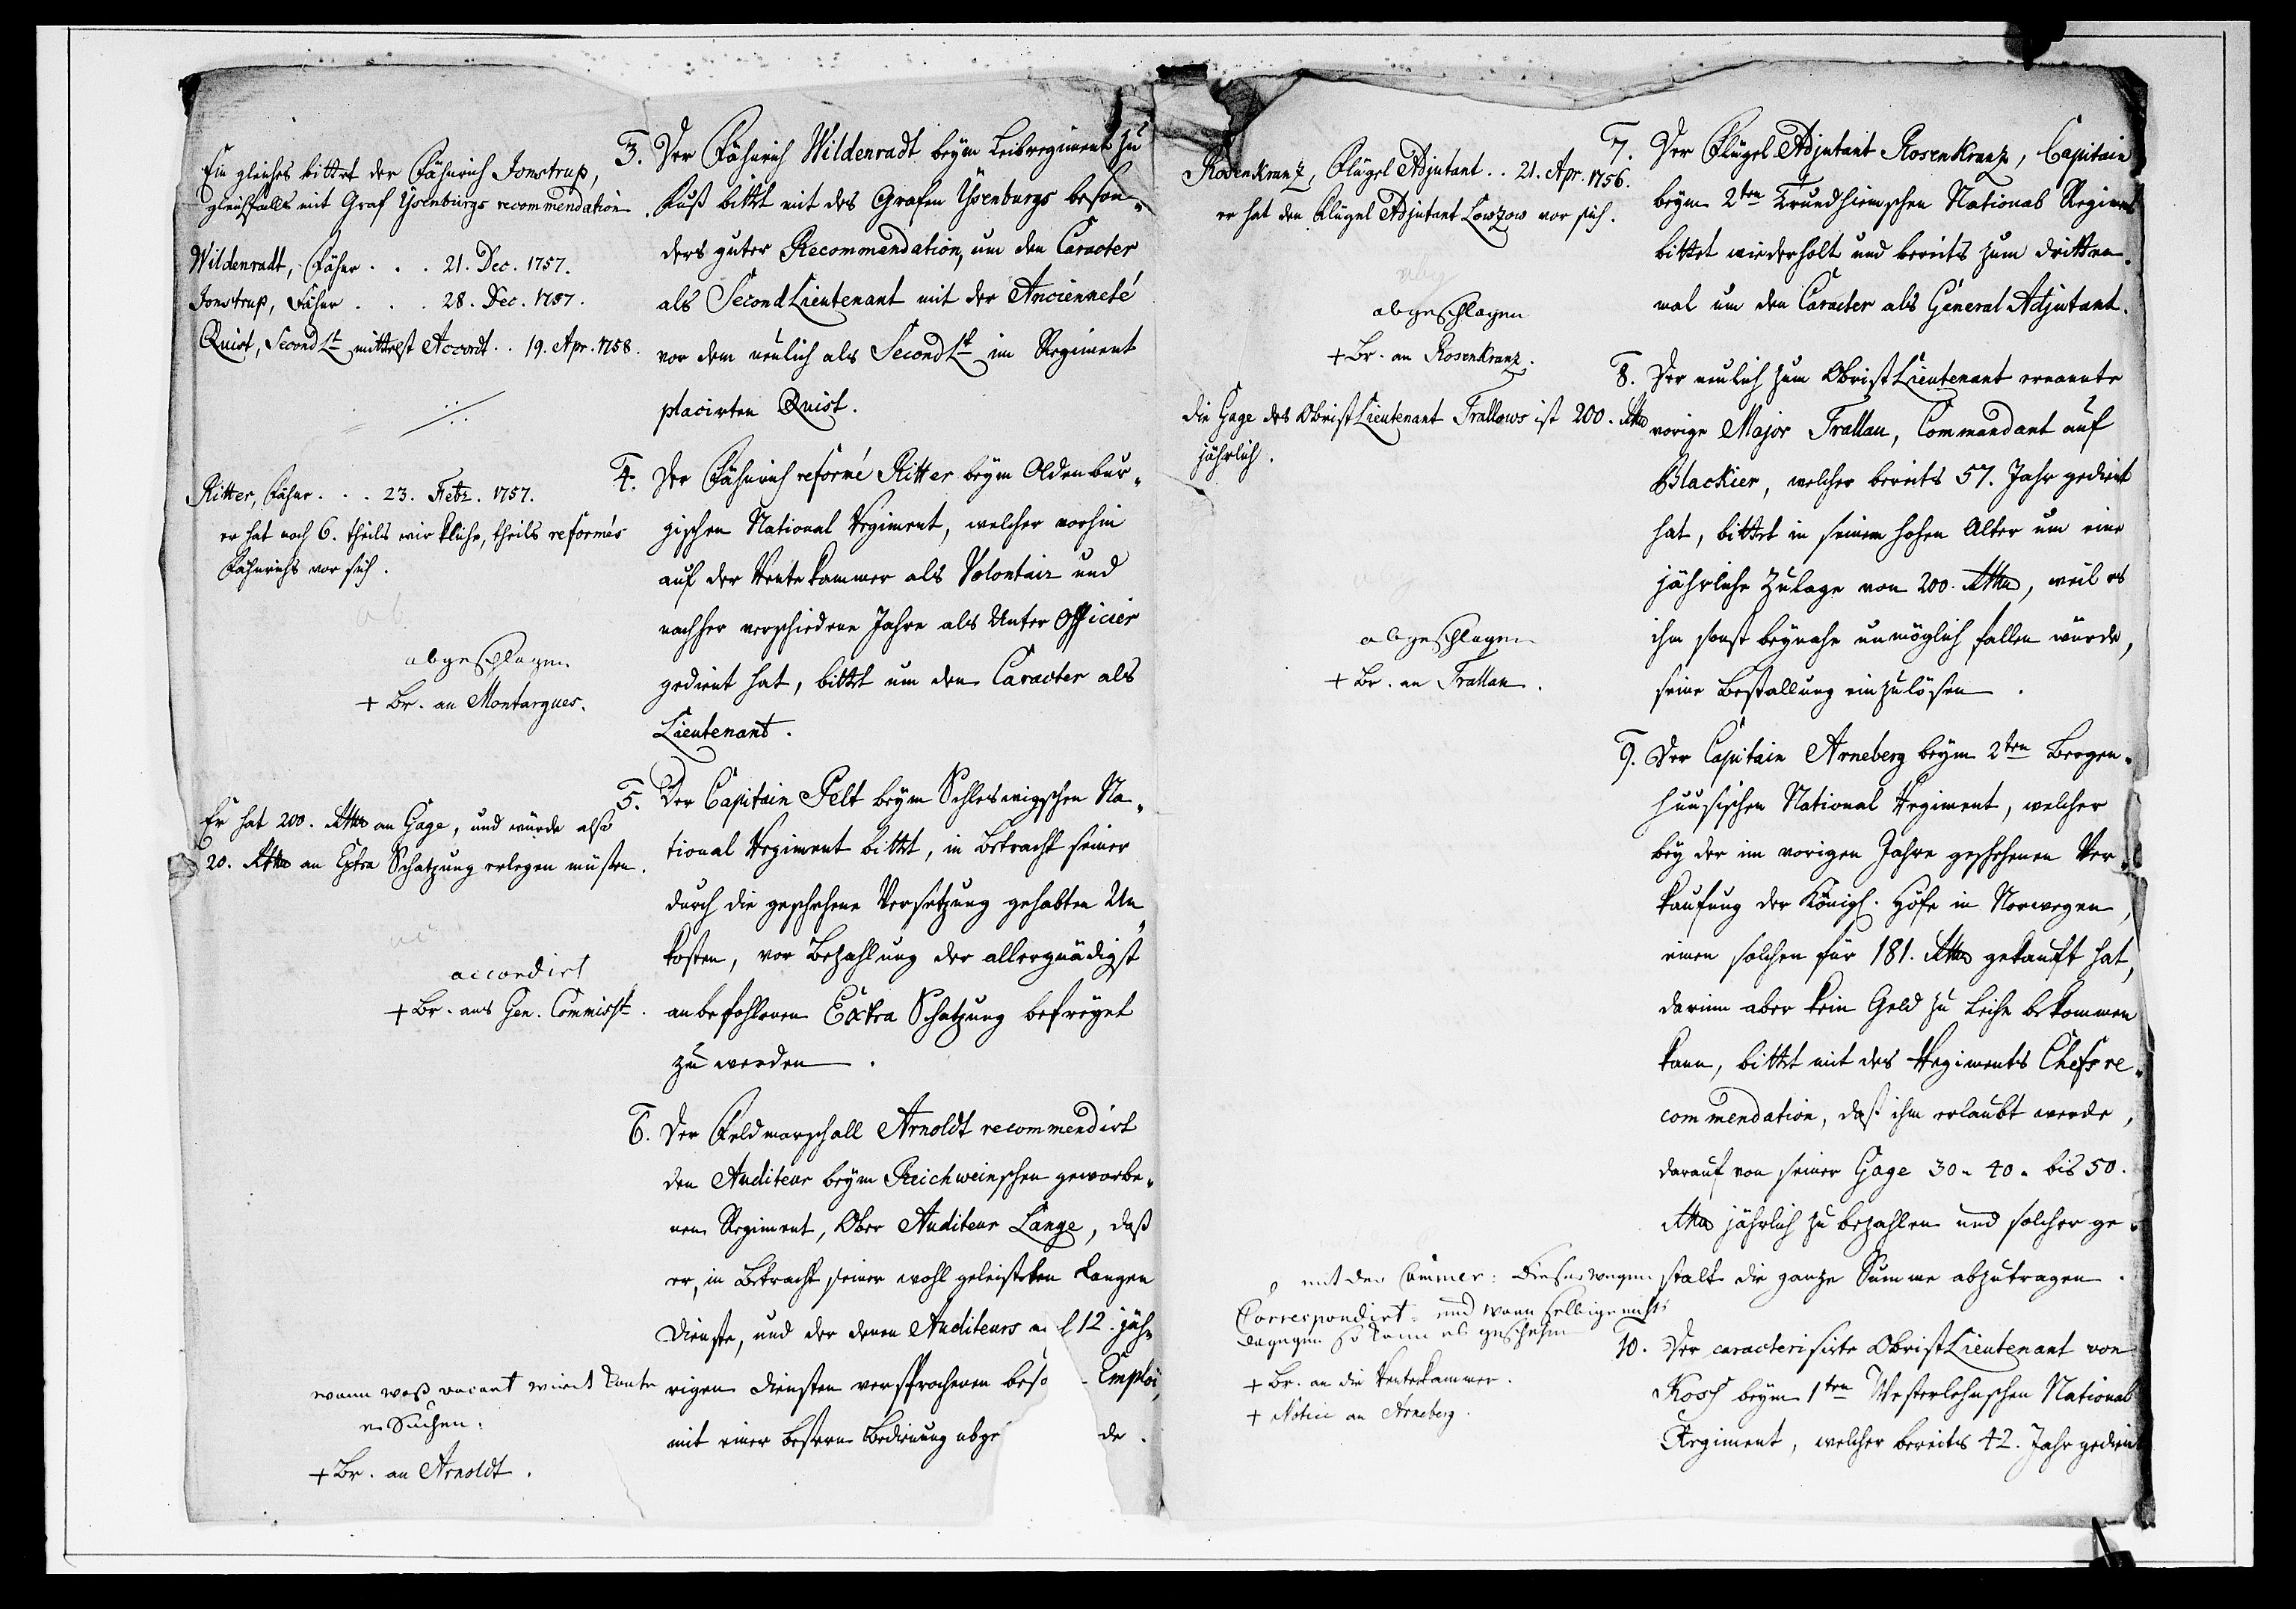 Ein gleiches bittet der Fähnrich Jonstrup,
gleichfalls mit Graf Ysenburgs recommendation.
Wildenradt, Fähnr. . . 21. Dec. 1757.
Jonstrup, Fähnr . . . 28. Dec. 1757.
Quist, Second Lt mittelst Accordt . . 19. Apr. 1758.
Ritter, Fähnr. . . 23. Febr. 1757.
er hat noch 6. theils würkliche, theils reformés
Fähnrichs vor sich.
abgeschlagen
+ Br. an Montargues.
Er hat 200. Rthlr an Gage, und würde also
20. Rthlr an Extra Schatzung erlegen müssen.
accordirt
+ Br. ans Gen. Commisst.
wann waß vacant wird kante
er Suchen.
+ Br. an Arnoldt.
3. Der Fähnrich Wildenradt beym Leibregiment zu
Fuß bittet mit des Grafen Ysenburgs beson„
ders guter Recommendation, um den Caracter
als Second Lieutenant mit der Ancienneté
vor dem neulich als Second Lt im Regiment
placirten Quist.
4. Der Fähnrich reformé Ritter beym Oldenbur„
gischen National Regiment, welcher vorhin
auf der Rentekammer als Volontair und
nachher verschiedene Jahre als Unter Officier
gedient hat, bittet um den Caracter als
Lieutenant.
5. Der Capitain Pelt beym Schleswigschen Na„
tional Regiment bittet, in Betracht seiner
durch die geschehene Versetzung gehabten Un„
kosten, vor Bezahlung der allergnädigst
anbefohlenen Extra Schatzung befreyet
zu werden.
6. Der Feldmarschall Arnoldt recommendirt
den Auditeur beym Reichweinschen geworbe„
nen Regiment, Ober Auditeur Lange, daß
er, in Betracht seiner wohl geleisteten langen
Dienste, und der denen Auditeurs 12. jäh„
rigen Diensten versprochenen beso Emploi,
mit einer bessern Bedienung abge de.
Rosenkranz, Flügel Adjutant . . 21. Apr. 1756.
er hat den Flügel Adjutant Lowzow vor sich.
abgeschlagen
+ Br. an Rosenkranz.
die Gage des ObristLieutenant Frallows ist 200. Rthlr
jährlich.
abgeschlagen
+ Br. an Frallau.
mit der Cammer: Dieserwegen
Correspondirt und wann selbige nichts
dagegen so kann es geschehen
+ Br. an die Rentekammer.
+ Notice an Arneberg.
7. Der Flügel Adjutant Rosenkranz, Capitain
beym 2ten Trundhiemschen National Regiment
bittet wiederholt und bereits zum dritten„
mal um den Caracter als General Adjutant.
8. Der neulich zum ObristLieutenant ernannte
vorige Major Frallau, Commandant auf
Blackier, welcher bereits 57. Jahr gedient
hat, bittet in seinem hohen Alter um eine
jährliche Zulage von 200. Rthlr, weil es
ihm sonst beynahe unmöglich fallen würde,
seine Bestallung einzulösen.
9. Der Capitain Arneberg beym 2ten Bergen„
huusischen National Regiment, welcher
bey der im vorigen Jahre geschehenen Ver„
kaufung der Königl. Höfe in Norwegen,
einen solchen für 181. Rthlr gekauft hat,
darinn aber kein Geld zu Leihe bekommen
kann, bittet mit des Regiments Chefs re„
commendation, daß ihm erlaubt werde,
darauf von seiner Gage 30. 40. bis 50.
Rthlr jährlich zu bezahlen und solcher ge„
stalt die ganze Summe abzutragen.
10. Der caracterisirte ObristLieutenant von
Kosch beym 1ten Westerlehnschen National
Regiment, welcher bereits 42. Jahr gedient